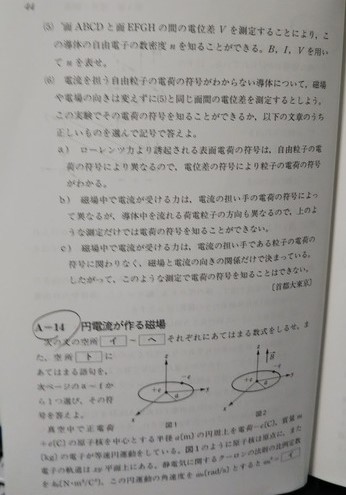 44
(5) 面ABCDと面EFGHの間の電位差Vを測定することにより,こ
の導体の自由電子の数密度nを知ることができる。B, I, Vを用い
てnを表せ。
(6) 電流を担う自由粒子の電荷の符号がわからない導体について,磁場
や電場の向きは変えずに(5)と同じ面間の電位差を測定するとしよう。
この実験でその電荷の符号を知ることができるか,以下の文章のうち
正しいものを選んで記号で答えよ。
a) ローレンツ力より誘起される表面電荷の符号は,自由粒子の電
荷の符号により異なるので,電位差の符号により粒子の電荷の符号
がわかる。
b) 磁場中で電流が受ける力は,電流の担い手の電荷の符号によっ
て異なるが,導体中を流れる荷電粒子の方向も異なるので,上のよ
うな測定だけでは電荷の符号を知ることができない。
c) 磁場中で電流が受ける力は,電流の担い手である粒子の電荷の
符号に関わりなく,磁場と電流の向きの関係だけで決まっている。
したがって,このような測定で電荷の符号を知ることはできない。
〔首都大東京〕
A-14 円電流が作る磁場
次の文の空所 イ ~ ヘ それぞれにあてはまる数式をしるせ。ま
た,空所 ト に
あてはまる語句を,
次ページのa~fか
ら1つ選び,その符
号を答えよ。
図1
図2
真空中で正電荷
+e〔C〕の原子核を中心とする半径a〔m〕の円周上を電荷-e〔C〕,質量m
〔kg〕の電子が等速円運動をしている。図1のように原子核は原点に,また
電子の軌道はxy平面上にある。静電気に関するクーロンの法則の比例定数
をk₀〔N·m²/C²〕,この円運動の角速度をω₀〔rad/s〕とすると